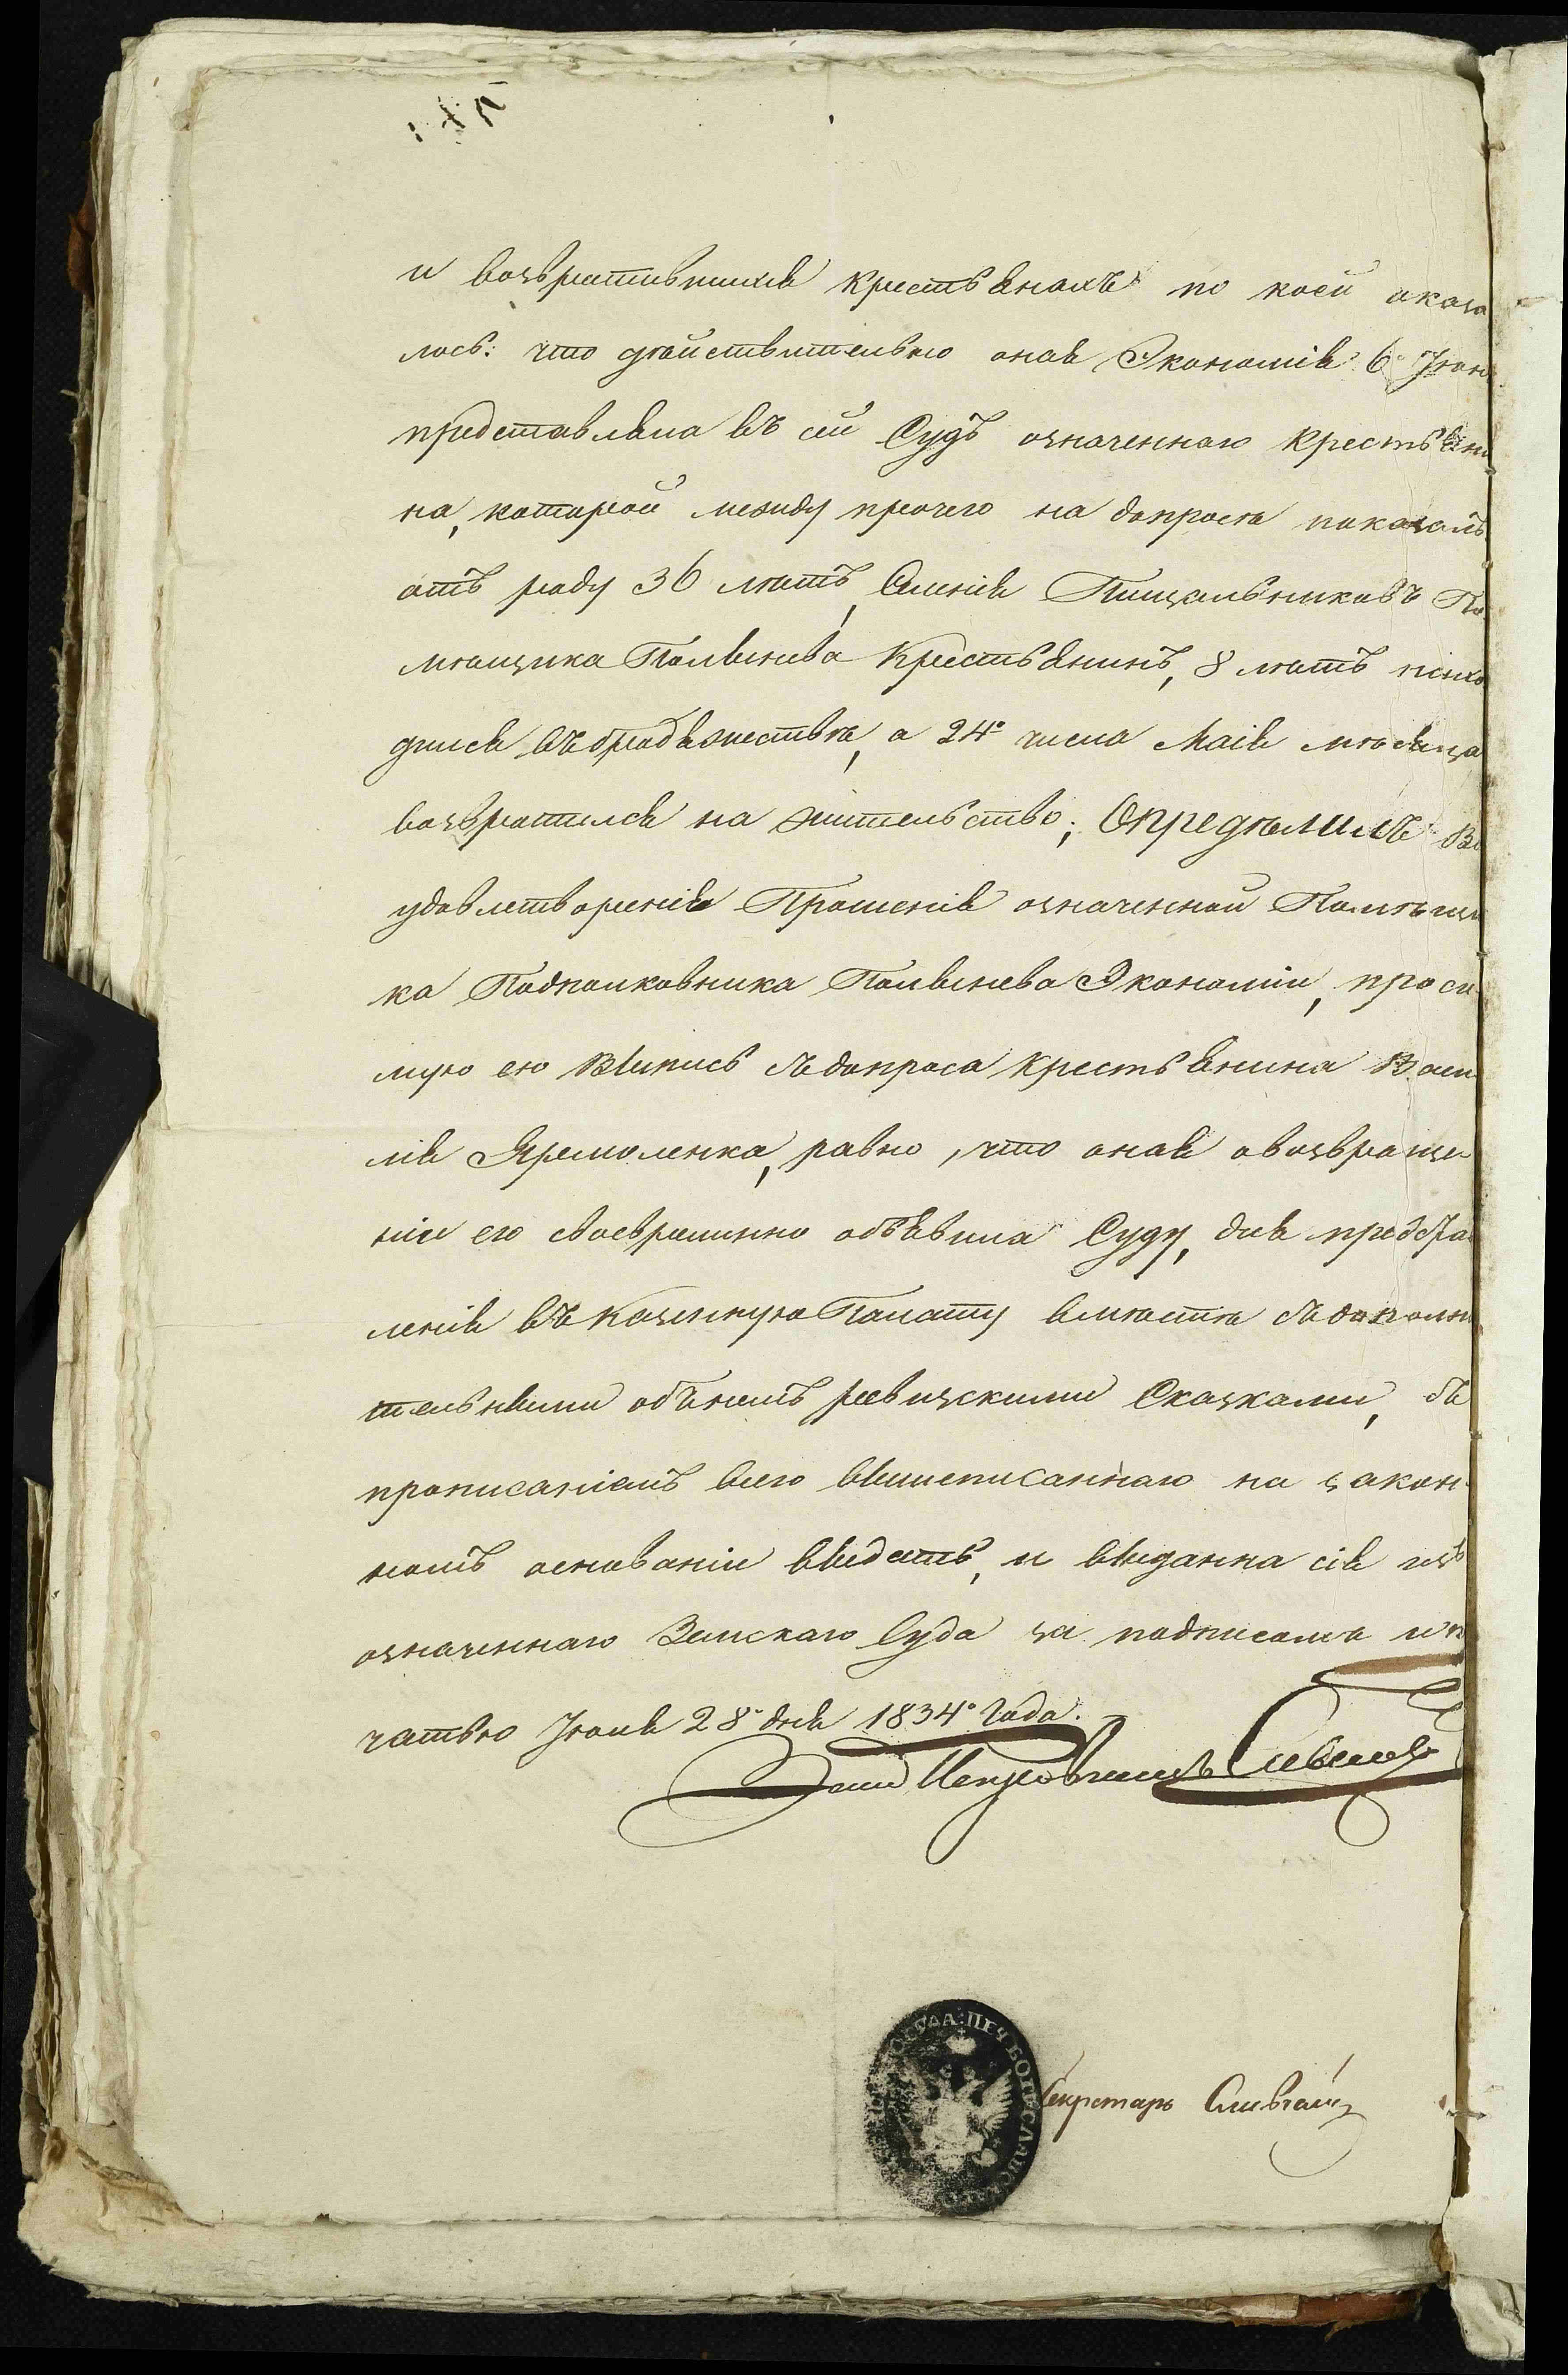 и возвратившихся крестьянахъ по коей оказа
лось: что дѣйствительно оная Экономія 6º Іюня
представляла въ сей Судъ означеннаго крестьяни
на, которой между прочего на допросѣ показалъ
отъ роду 36 лѣтъ, Семенъ Пищальниковъ По
мѣщика Полвинева Крестьянинъ, 8 лѣтъ нахо
дился въ бродяжествѣ, а 24º числа Маія мѣсяца
возвратился на жительство; Опредѣлилъ Въ
удовлетвореніе Прошенія означенной Помѣщи
ка Подполковника Полвинева Экономіи, проси
мую ею Выпись съ допроса крестьянина Васи
лія Яремоленка, равно, что оная о возвраще
ніи его своевременно объявила Суду, для представ
ленія въ Казенную Палату вмѣстѣ съ дополни
тельными объ немъ ревизскими Сказками, съ
прописаніемъ всего вышеписаннаго на закон
номъ основаніи выдать, и выдана сія изъ
означеннаго Земскаго Суда за подписомъ и пе
чатью Іюня 28º дня 1834º Года.
Секретарь